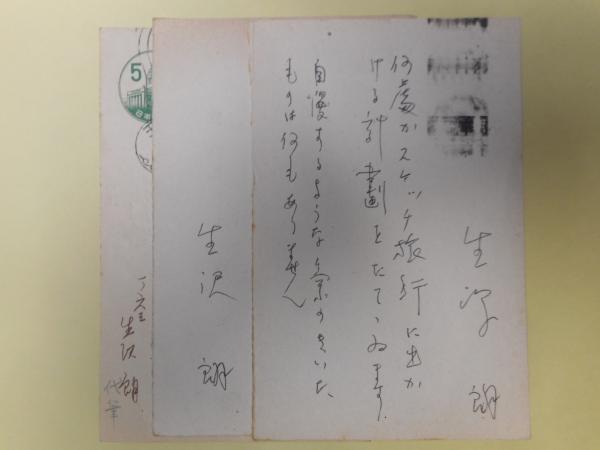 生沢 朗
何處かスケッチ旅行に出か
ける計劃をたてゝゐます
自慢するような気のきいた
ものは何もありません
生沢 朗
5
日本
生沢 朗
代筆